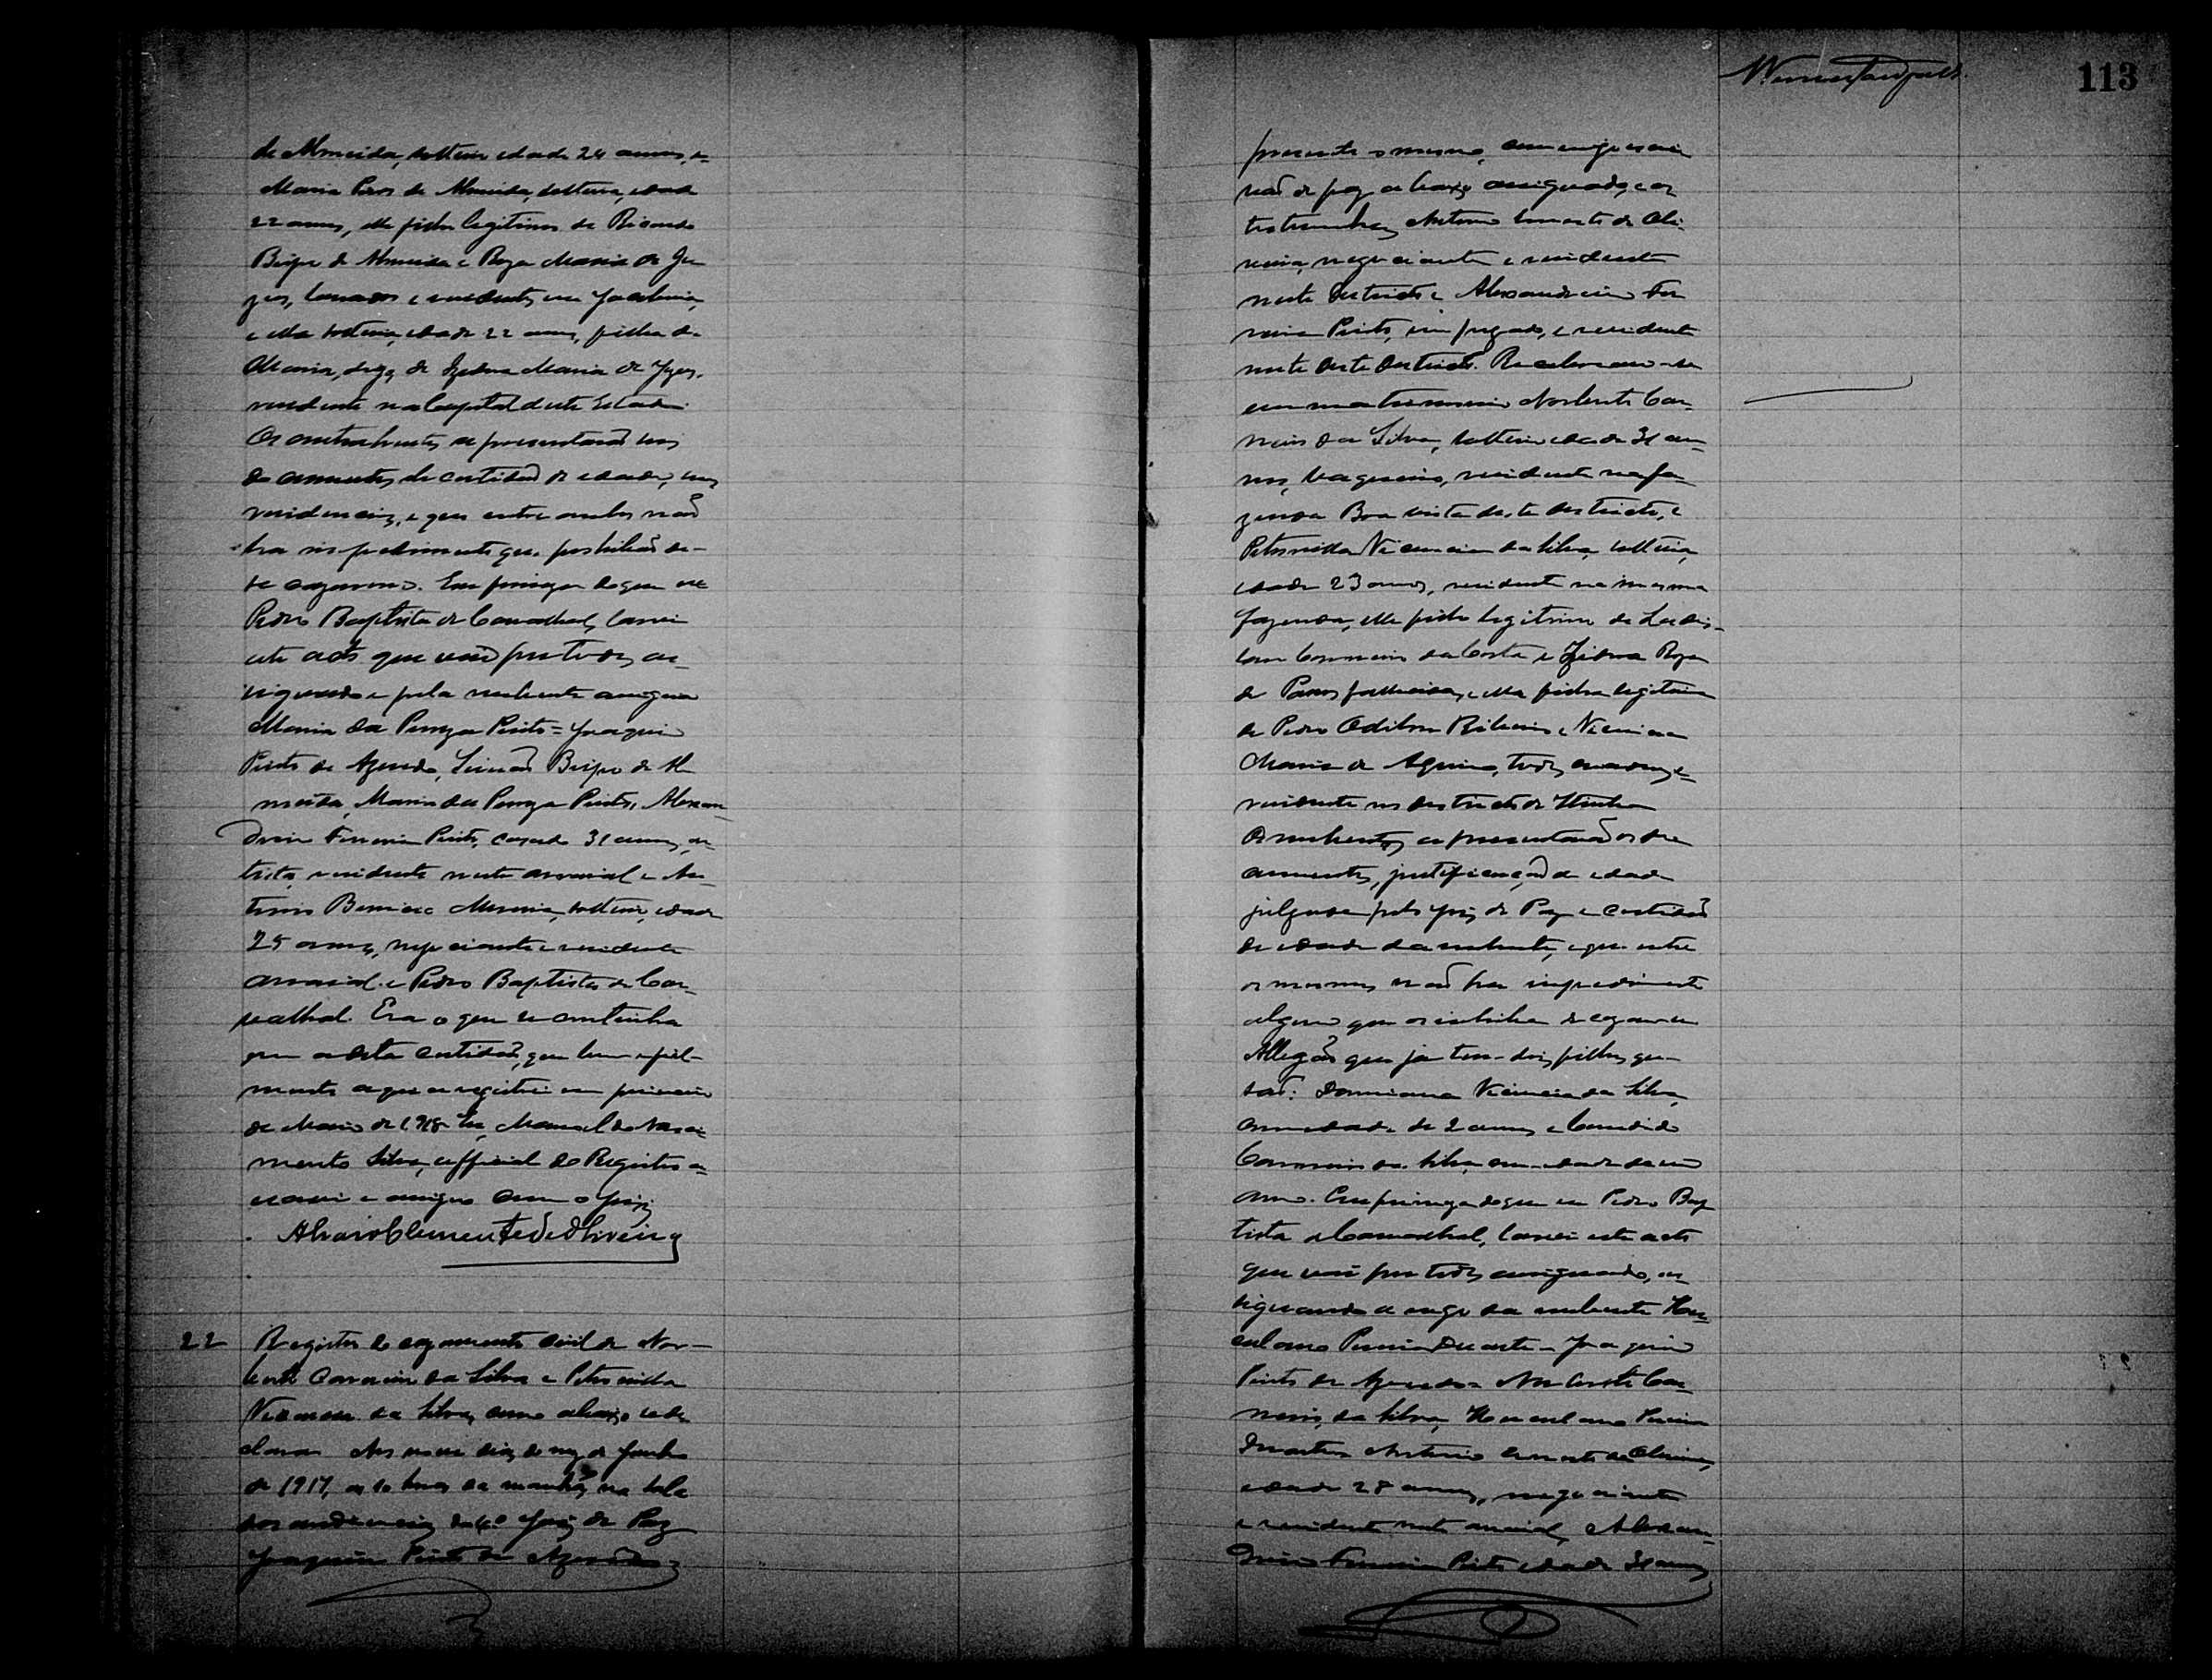 de Almeida, solteiro edade 24 annos, e
Maria Pires de Almeida, solteira, edade
22 annos, elle filho legitimo de Ricardo
Bispo de Almeida e Roza Maria de Je
zus, lavrador e residentes em Jacobina,
e ella solteira, edade 22 annos, filha de
Maria, digo, de Izidora Maria de Jezus,
residente na Capital deste Estado.
Os contrahentes apresentarão seus
documentos de certidão de edade, suas
residencias, e que entre ambos não
ha impedimento que prohibão de
se cazarem. Em firmeza do que eu
Pedro Baptista de Carvalhal, lavrei
este acto que vai por todos as
signado e pela nubente assigna
Maria da Penza Pinto = Joaquim
Pinto de Azevedo, Simeão Bispo de Al
meida, Maria da Penza Pinto, Alexan
drino Ferreira Pinto, casado 31 annos, ar
tista residente neste arraial e An
tonio Moreira, solteiro, edade
25 annos, negociante e residente
arraial e Pedro Baptista de Car
valhal. Era o que se continha
em a dita certidão, que bem e fiel
mente aqui registrei em primeiro
de Maio de 1918. Eu, Manoel do Nasci
mento Silva, official do Registro es
crevi e assigno com o Juiz
Alvaro Clemente de Oliveira
22 Registro de cazamento civil de Nor
berto Carneiro da Silva e Petronilla
Vicencia da Silva, como abaixo se de
clara. Aos nove dias do mez de Junho
de 1917, as 10 horas da manhã, na sala
das audiencias do 1º Juiz de Paz
Joaquim Pinto de Azevedo
113
presente o mesmo, commigo escri
vão de paz abaixo assignado, e as
testemunhas Antonio Ernesto de Oli
veira, negociante e residente
neste destricto e Alexandrino Fer
reira Pinto, empregado, e residente
neste deste destricto. Receberam-se
em matrimonio Norberto Car
neiro da Silva, solteiro edade 31 an
nos, vaqueiro, residente na fa
zenda Boa vista deste destricto, e
Petronilla Vicencia da Silva solteira,
edade 23 annos, residente na mesma
fazenda, elle filho legitimo de Ladis
lau Carneiro da Costa e Izidora Roza
de Passos fallecidos, e ella filha legitima
de Pedro Odilon Ribeiro e Vicencia
Maria de Aquino, todos e
residente no destricto de
Os nubentes apresentarão os do
cumentos, justificação de edade
julgada pelo Juiz de Paz e certidão
de edade da nubente, e que entre
os mesmos não ha impedimento
algum que os inhiba de cazarem
Allegão que ja tem dois filhos que
são: Damiana Vicencia da Silva,
com edade de 2 annos e Candido
Carneiro da Silva com edade de um
anno. Em firmeza do que eu Pedro Bap
tista de Carvalhal, lavrei este acto
que vai por todos assignado, as
signando a rogo da nubente Her
culano Pereira Duarte - Joaquim
Pinto de Azevedo - Norberto Car
neiro da Silva, Herculano Pereira
Duarte, Antonio Ernesto de Oliveira,
edade 28 annos, negociante
e residente neste arraial, Alexan
drino Ferreira Pinto edade 31 annos